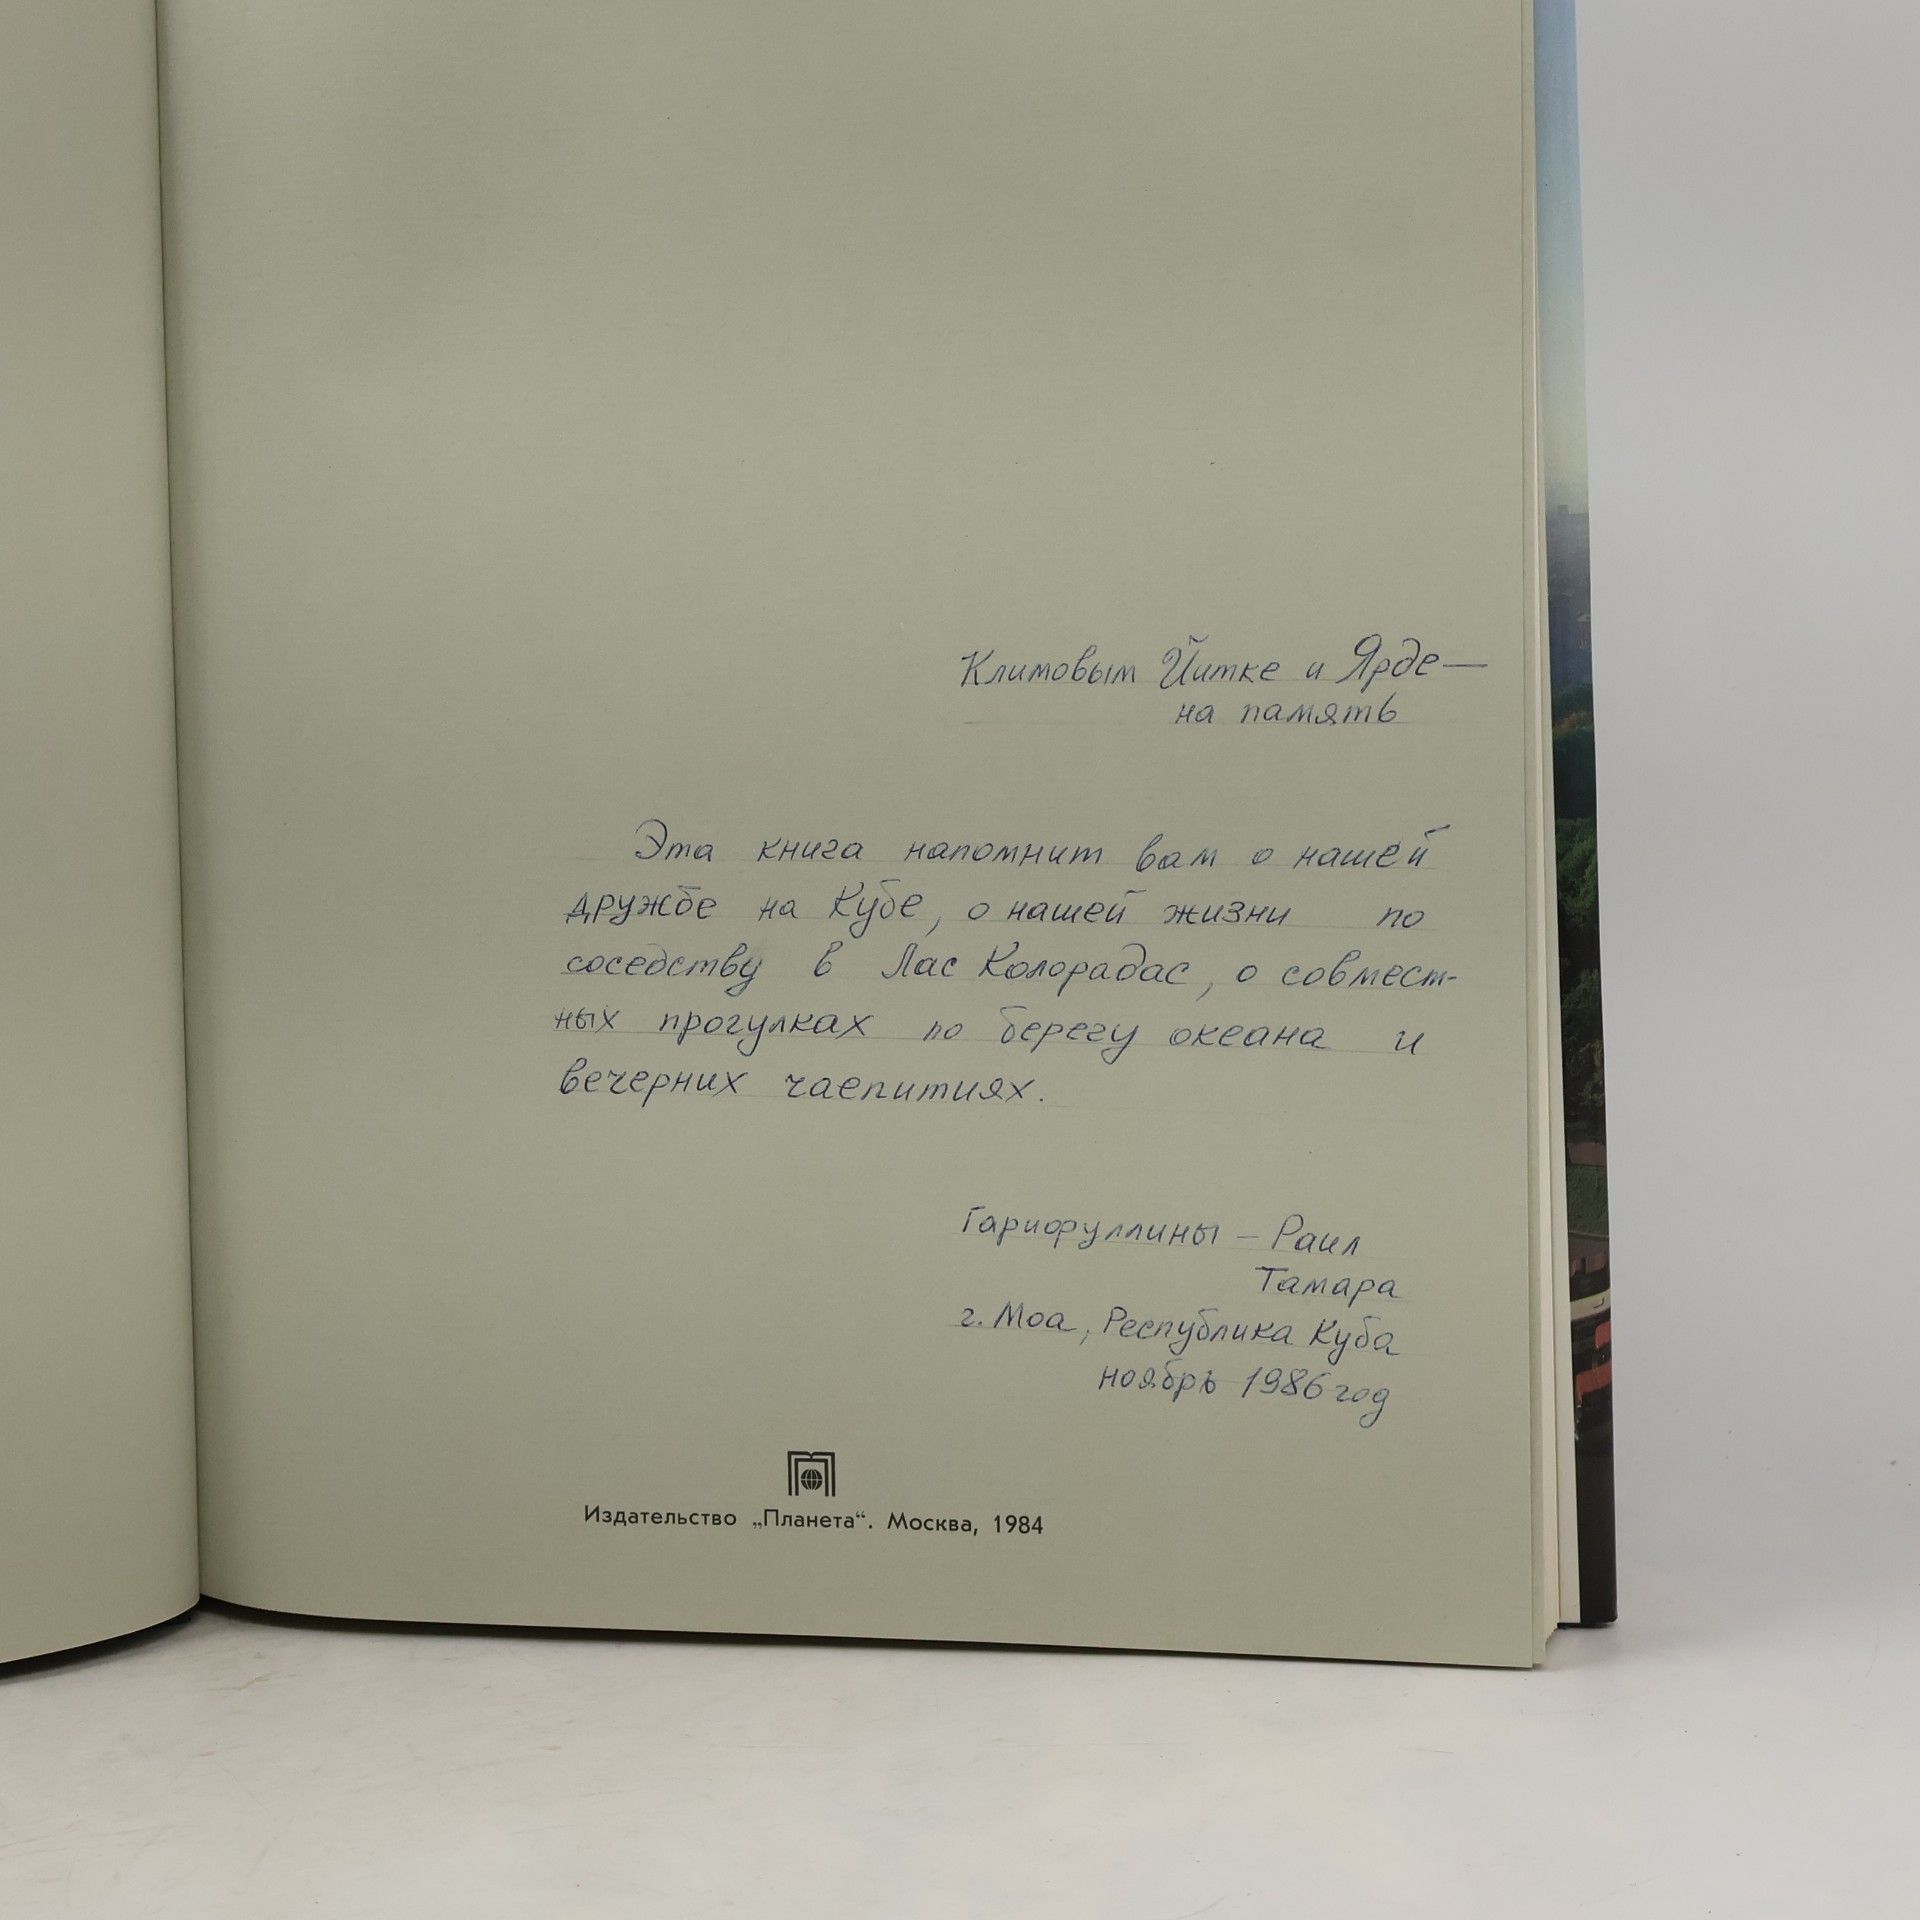 Климовым Йитке и Ярде —
на память
Эта книга напомнит вам о нашей
дружбе на Кубе, о нашей жизни по
соседству в Лас Колорадас, о совмест-
ных прогулках по берегу океана и
вечерних чаепитиях.
Гарифуллины – Раил
Тамара
г. Моа, Республика Куба
ноябрь 1986 год
Издательство „Планета“. Москва, 1984